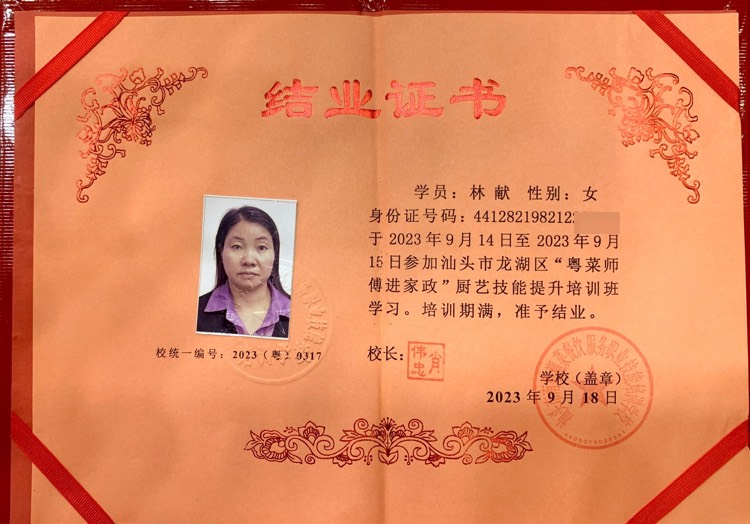 结业证书
学员：林 献 性别：女
身份证号码：4412821982122
于 2023 年 9 月 14 日至 2023 年 9 月
15 日参加汕头市龙湖区“粤菜师
傅进家政”厨艺技能提升培训班
学习。培训期满，准予结业。
校统一编号：2023（粤）0317
校长：
肖伟忠
学校（盖章）
2023 年 9 月 18 日
餐饮服务职业技能培训学校